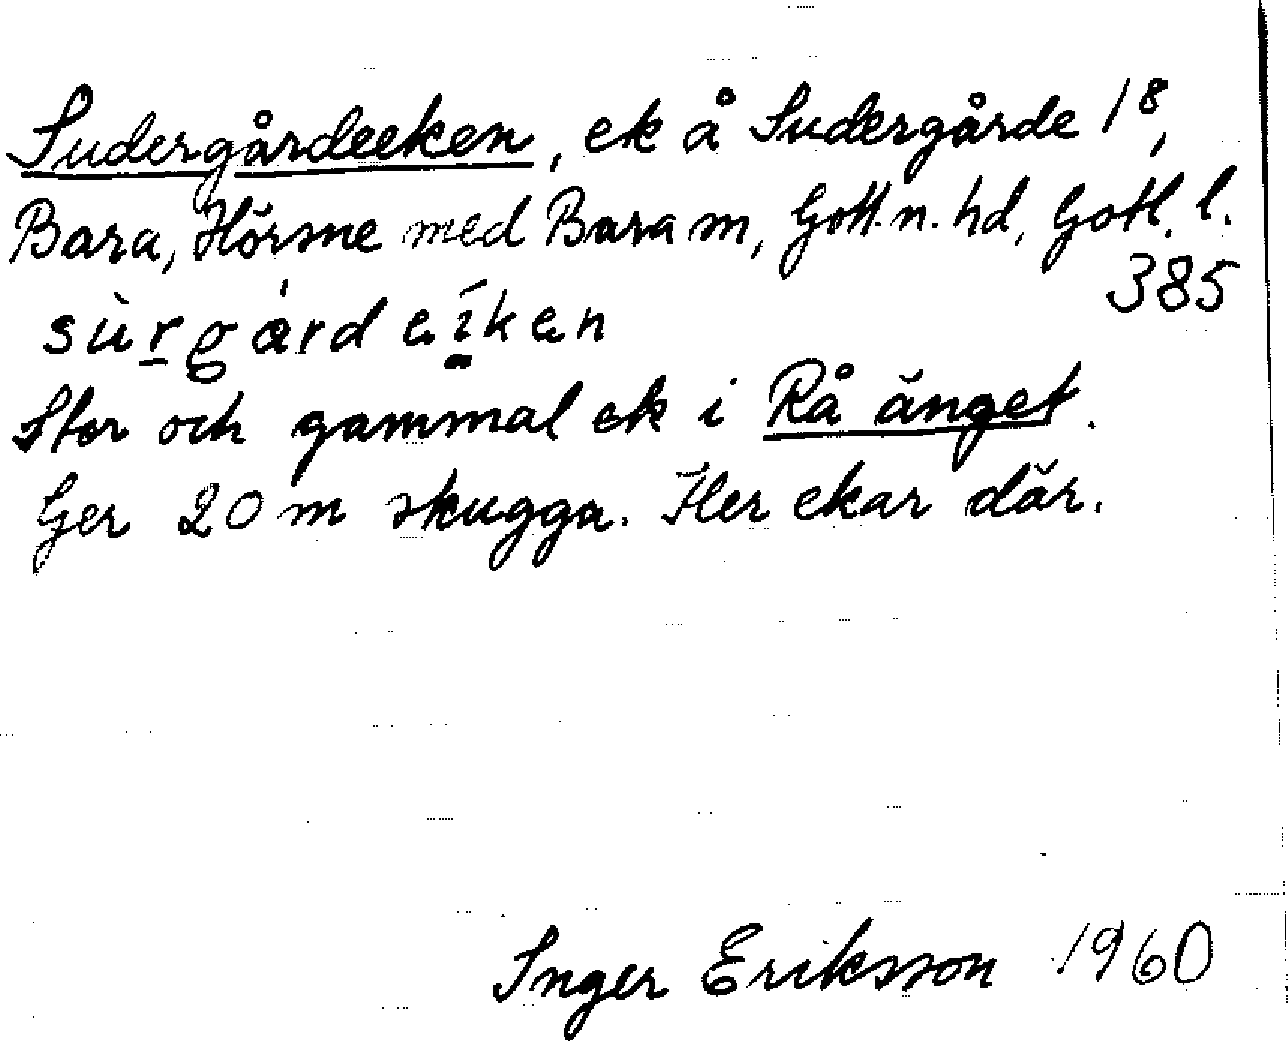 Sudergårdeeken, ek å Sudergårde 1⁸,
Bara, Hörsne med Bara sn, Gotl. n. hd, Gotl. l.
385
sùrgárdeíken
Stor och gammal ek i Rå änget.
Ger 20 m skugga. Fler ekar där.
Inger Eriksson 1960